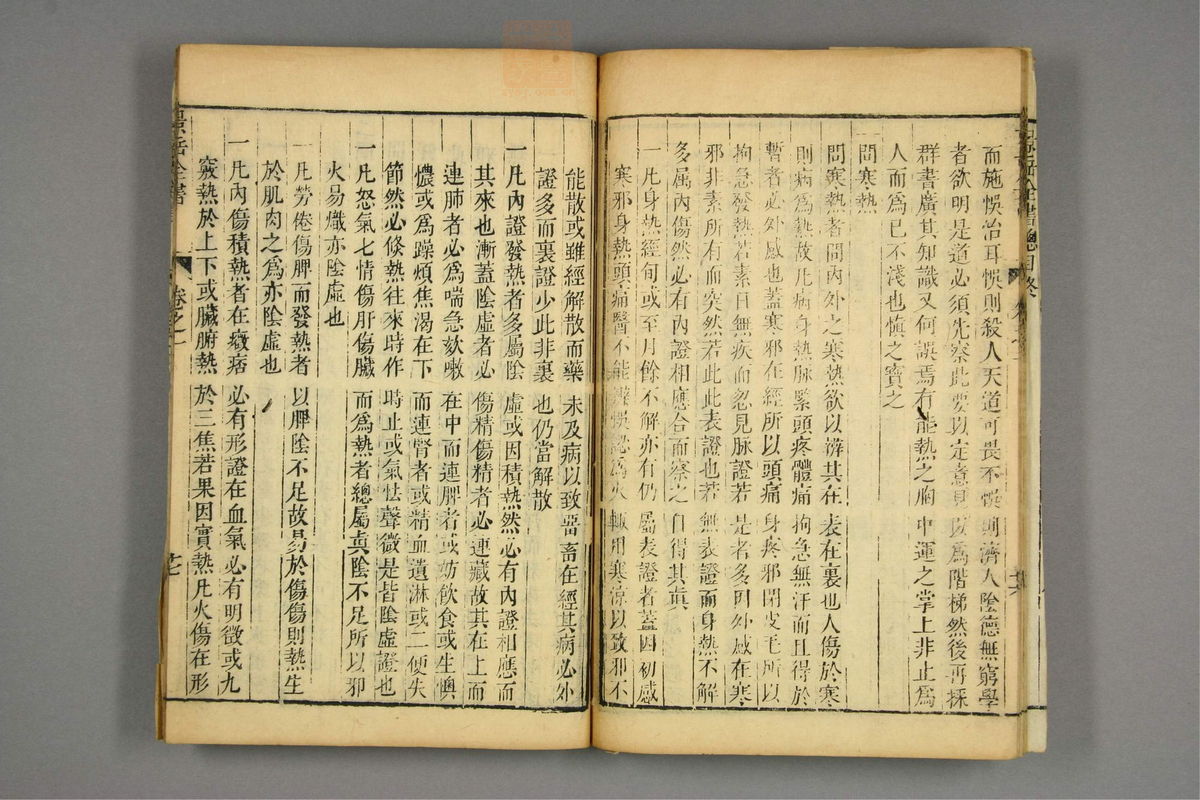 景岳全書總目終
而施悞治耳悞則殺人天道可畏不悞則濟人陰德無窮學
者欲明是道必須先察此要以定意見以為階梯然後再採
群書廣其知識又何誤焉有能熱之胸中運之掌上非止為
人而為已不淺也慎之寶之
一問寒熱
問寒熱者問內外之寒熱欲以辨其在表在裏也人傷於寒
則病為熱故凡病身熱脉緊頭疼體痛拘急無汗而且得於
暫者必外感也蓋寒邪在經所以頭痛身疼邪閉皮毛所以
拘急發熱若素日無疾而忽見脉證若是者多因外感在寒
邪非素所有而突然若此此表證也若無表證而身熱不解
多屬內傷然必有內證相應合而察之自得其真
一凡身熱經旬或至月餘不解亦有仍屬表證者蓋因初感
寒邪身熱頭痛醫不能辨悞認為火輒用寒涼以致邪不
能散或雖經解散而藥未及病以致畱畜在經其病必外
證多而裏證少此非裏也仍當解散
一凡內證發熱者多屬陰虛或因積熱然必有內證相應而
其來也漸蓋陰虛者必傷精傷精者必連藏故其在上而
連肺者必為喘急欬嗽在中而連脾者或妨飲食或生懊
憹或為躁煩焦渴在下而連腎者或精血遺淋或二便失
節然必倐熱往來時作時止或氣怯聲微是皆陰虛證也
一凡怒氣七情傷肝傷臟而為熱者總屬真陰不足所以邪
火易熾亦陰虛也
一凡勞倦傷脾而發熱者以脾陰不足故易於傷傷則熱生
於肌肉之為亦陰虛也
一凡內傷積熱者在癥痞必有形證在血氣必有明徵或九
竅熱於上下或臟腑熱於三焦若果因實熱凡火傷在形
景岳全書 卷之一 廿七